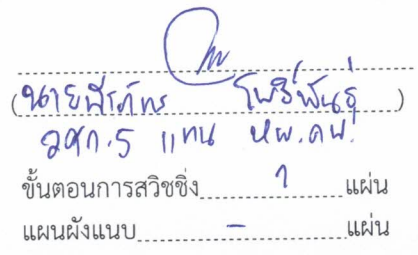 (นายพีรภัทร โพธิ์พันธุ์)
วศก.5 แทน หผ.คพ.
ขั้นตอนการสวิชชิ่ง 1 แผ่น
แผนผังแนบ - แผ่น